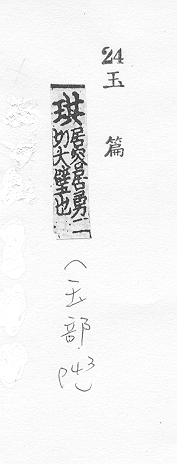 24
玉篇
珙居容居勇二
切大璧也
(玉部 p43)